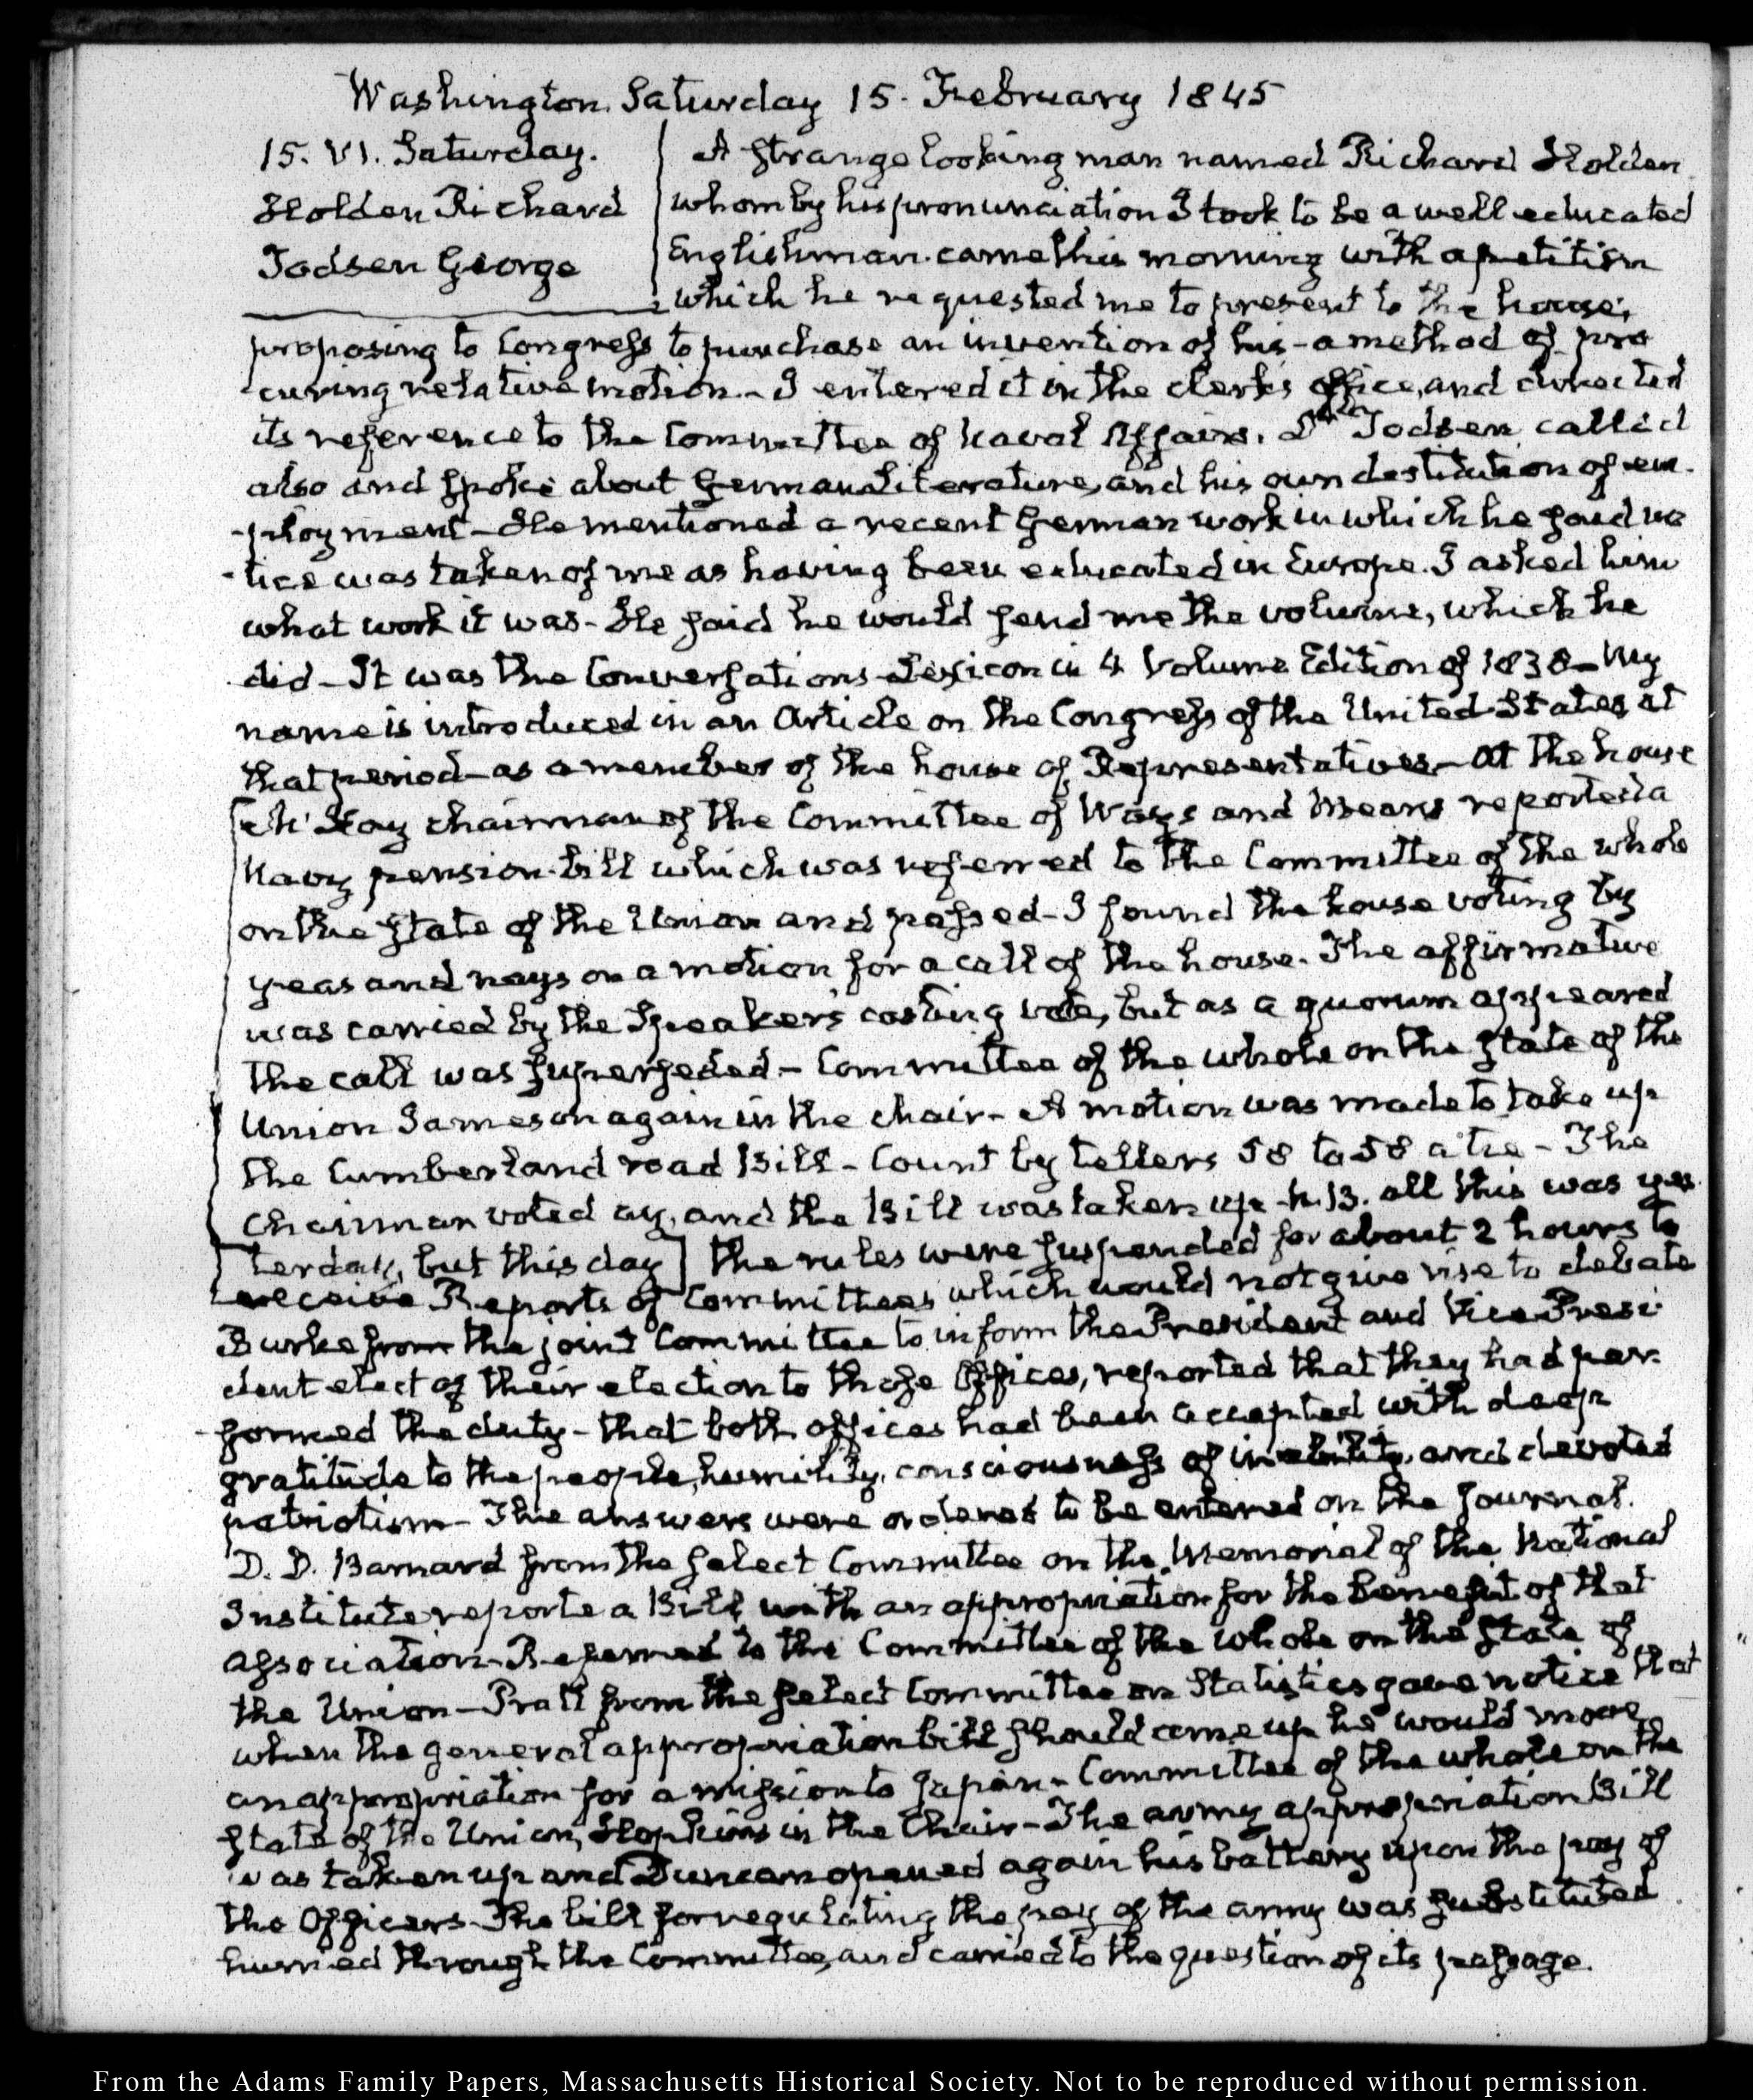 Washington. Saturday 15. February 1845
15. VI. Saturday.
Holden Richard
Todsen George
A strange looking man named Richard Holden
whom by his pronunciation I took to be a well educated
Englishman. came this morning with a petition
which he requested me to present to the house,
proposing to Congress to purchase an invention of his - a method of pro
curing relative motion. - I entered it in the clerk's office, and directed
its reference to the Committee of Naval Affairs. Dr. Todsen called
also and spoke about German Literature, and his own destitution of em-
-ployment - He mentioned a recent German work in which he said no
-tice was taken of me as having been educated in Europe. I asked him
what work it was - He said he would send me the volume, which he
did - It was the Conversations-Lexicon in 4 Volume Edition of 1838 - My
name is introduced in an Article on the Congress of the United States at
that period - as a member of the house of Representatives - At the house
[McKay chairman of the Committee of Ways and Means reported a
Navy pension bill which was referred to the Committee of the whole
on the state of the Union and passed - I found the house voting by
yeas and nays on a motion for a call of the house. The affirmative
was carried by the Speaker's casting vote, but as a quorum appeared
the call was superseded - Committee of the whole on the state of the
Union Jameson again in the chair - A motion was made to take up
the Cumberland road Bill - Count by tellers 58 to 58 a tie - The
chairman voted ay, and the Bill was taken up - N.B. all this was yes
terday, but this day] the rules were suspended for about 2 hours to
receive Reports of Committees which would not give rise to debate
Burke from the joint Committee to inform the President and Vice Presi
dent elect of their election to those Offices, reported that they had per-
-formed the duty - that both offices had been accepted with deep
gratitude to the people, humility, consciousness of inability, and devoted
patriotism - The answers were ordered to be entered on the Journal.
D. D. Barnard from the select Committee on the Memorial of the National
Institute, reporte a Bill with an appropriation for the benefit of that
association - Referred to the Committee of the whole on the state of
the Union - Pratt from the select Committee on Statistics gave notice that
when the general appropriation bill should come up he would move
an appropriation for a mission to Japan - Committee of the whole on the
state of the Union, Hopkins in the Chair - The army appropriation Bill
was taken up and Duncan opened again his battery upon the pay of
the Officers - The bill for regulating the pay of the army was substituted
hurried through the Committee, and carried to the question of its passage.
From the Adams Family Papers, Massachusetts Historical Society. Not to be reproduced without permission.